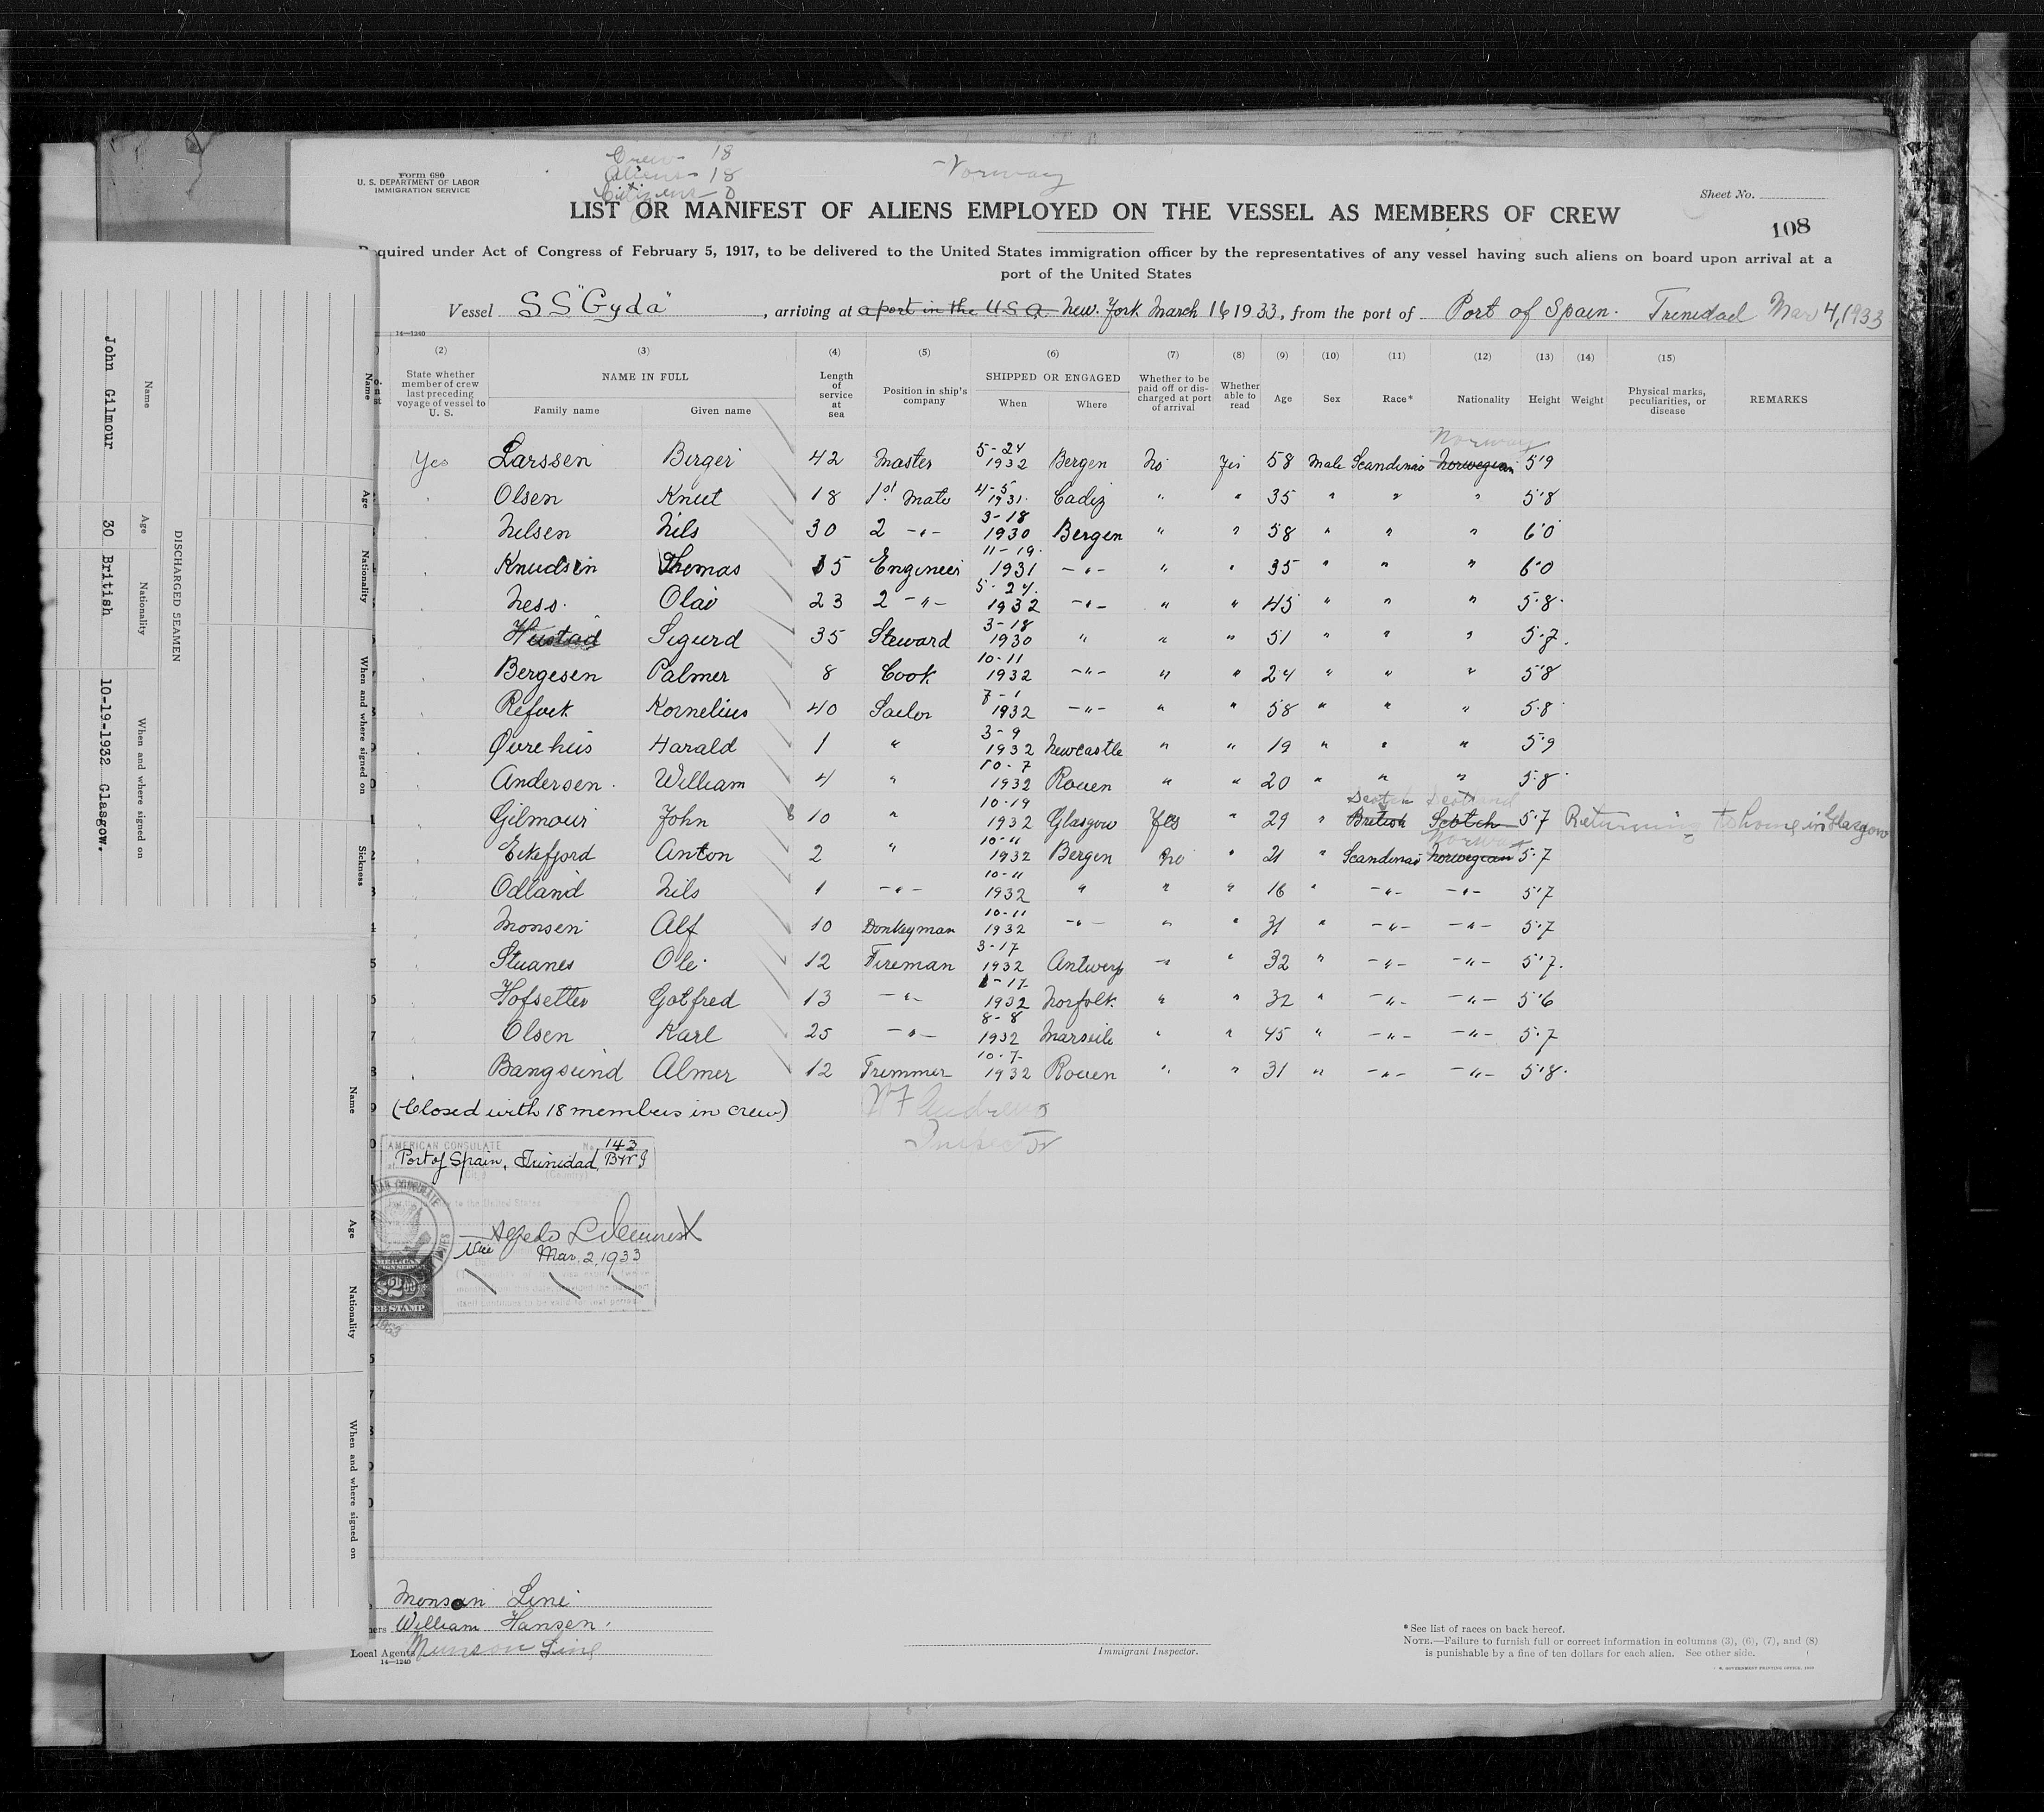 Crew 18
Aliens 18
Citizens 0
Norway
Form 680
U. S. DEPARTMENT OF LABOR
IMMIGRATION SERVICE
Sheet No.
LIST OR MANIFEST OF ALIENS EMPLOYED ON THE VESSEL AS MEMBERS OF CREW
108
Required under Act of Congress of February 5, 1917, to be delivered to the United States immigration officer by the representatives of any vessel having such aliens on board upon arrival at a
port of the United States
Vessel SS "Gyda", arriving at a port in the U.S.A. New York March 16 1933, from the port of Port of Spain. Trinidad Mar 4, 1933
14—1240
(2) (3) (4) (5) (6) (7) (8) (9) (10) (11) (12) (13) (14) (15)
State whether member of crew last preceding voyage of vessel to U. S. NAME IN FULL Family name Given name Length of service at sea Position in ship's company SHIPPED OR ENGAGED When Where Whether to be paid off or discharged at port of arrival Whether able to read Age Sex Race* Nationality Height Weight Physical marks, peculiarities, or disease REMARKS
Norway
Yes Larssen Birger 42 Master 5-24 1932 Bergen No Yes 58 Male Scandinav Norwegian 5'9
Olsen Knut 18 1st Mate 4-5 1931 Cadiz " " 35 " " " 5'8
Nilsen Nils 30 2 -"- 3-18 1930 Bergen " " 58 " " " 6'0
Knudsen Thomas 15 Engineer 11-19 1931 -"- " " 35 " " " 6'0
Ness Olav 23 2 -"- 5-24 1932 -"- " " 45 " " " 5'8
Hustad Sigurd 35 Steward 3-18 1930 " " " 51 " " " 5'7
Bergesen Palmer 8 Cook 10-11 1932 -"- " " 24 " " " 5'8
Refvek Kornelius 40 Sailor 7-1 1932 -"- " " 58 " " " 5'8
Øvrehus Harald 1 " 3-9 1932 Newcastle " " 19 " " " 5'9
Andersen William 4 " 10-7 1932 Rouen " " 20 " " " 5'8
Scotch Scotland
Gilmour John 10 " 10-19 1932 Glasgow Yes " 29 " British Scotch 5'7 Returning to home in Glasgow
Norway
Eikefjord Anton 2 " 10-11 1932 Bergen No " 21 " Scandinav Norwegian 5'7
Odland Nils 1 -"- 10-11 1932 " " " 16 " -"- -"- 5'7
Monsen Alf 10 Donkeyman 10-11 1932 -"- " " 31 " -"- -"- 5'7
Stuanes Ole 12 Fireman 3-17 1932 Antwerp " " 32 " -"- -"- 5'7
Hofsetter Gotfred 13 -"- 1-17 1932 Norfolk " " 32 " -"- -"- 5'6
Olsen Karl 25 -"- 8-8 1932 Marseile " " 45 " -"- -"- 5'7
Bangsund Almer 12 Trimmer 10-7 1932 Rouen " " 31 " -"- -"- 5'8
(Closed with 18 members in crew)
W F Andrews
Inspector
AMERICAN CONSULATE No. 143
Port of Spain, Trinidad, BWI
to the United States
Vice Mar. 2, 1933
AMERICAN
$2.00
FEE STAMP
1933
Monson Line
William Hansen
Local Agents Munson Line
14—1240
Immigrant Inspector.
*See list of races on back hereof.
NOTE.—Failure to furnish full or correct information in columns (3), (6), (7), and (8)
is punishable by a fine of ten dollars for each alien. See other side.
DISCHARGED SEAMEN
Name Age Nationality When and where signed on
John Gilmour 30 British 10-19-1932 Glasgow.
Name Age Nationality When and where signed on Sickness
Name Age Nationality When and where signed on